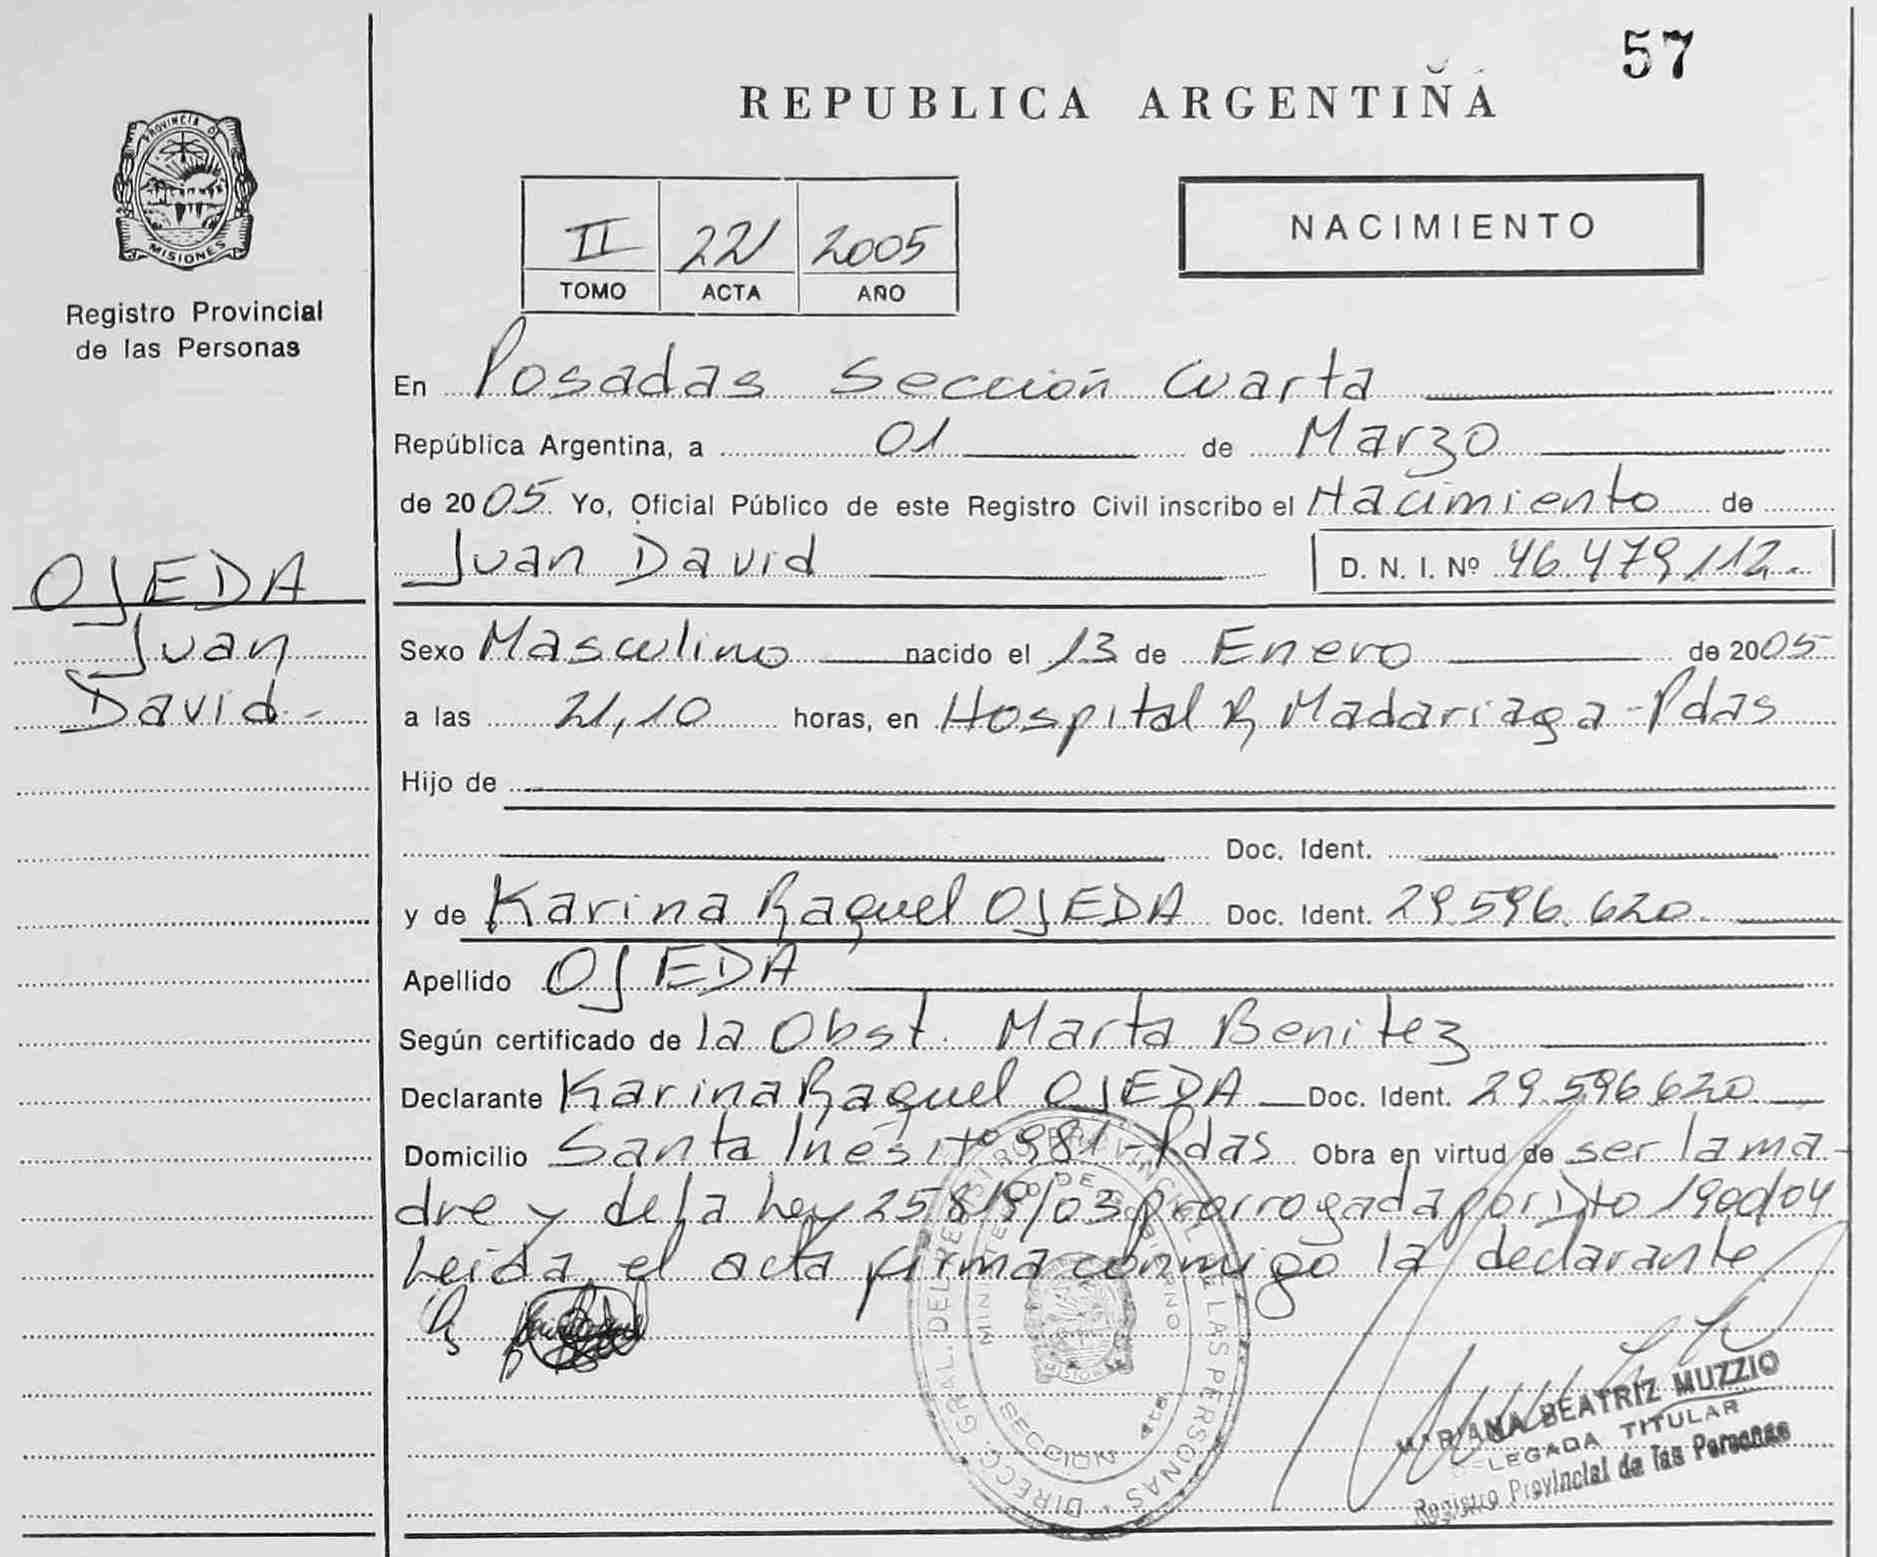 57
REPUBLICA ARGENTINA
PROVINCIA DE
MISIONES
Registro Provincial
de las Personas
II 221 2005
TOMO ACTA AÑO
NACIMIENTO
En Posadas Sección Cuarta
República Argentina, a 01 de Marzo
de 2005 Yo, Oficial Público de este Registro Civil inscribo el Nacimiento de
Juan David D. N. I. Nº 46.479.112.-
OJEDA
Juan
David.-
Sexo Masculino nacido el 13 de Enero de 2005
a las 21,10 horas, en Hospital R. Madariaga - Pdas
Hijo de
Doc. Ident.
y de Karina Raquel OJEDA Doc. Ident. 29.596.620.
Apellido OJEDA
Según certificado de la Obst. Marta Benitez
Declarante Karina Raquel OJEDA Doc. Ident. 29.596.620.
Domicilio Santa Inés Nº 981 - Pdas Obra en virtud de ser la ma-
dre y de la Ley 25819/03 prorrogada por Dto 1900/04
Leida el acta firma conmigo la declarante
DIRECC. GRAL. DEL REGISTRO PROVINCIAL DE LAS PERSONAS
MINISTERIO DE GOBIERNO
MISIONES
SECCION 4ta.
MARIANA BEATRIZ MUZZIO
DELEGADA TITULAR
Registro Provincial de las Personas